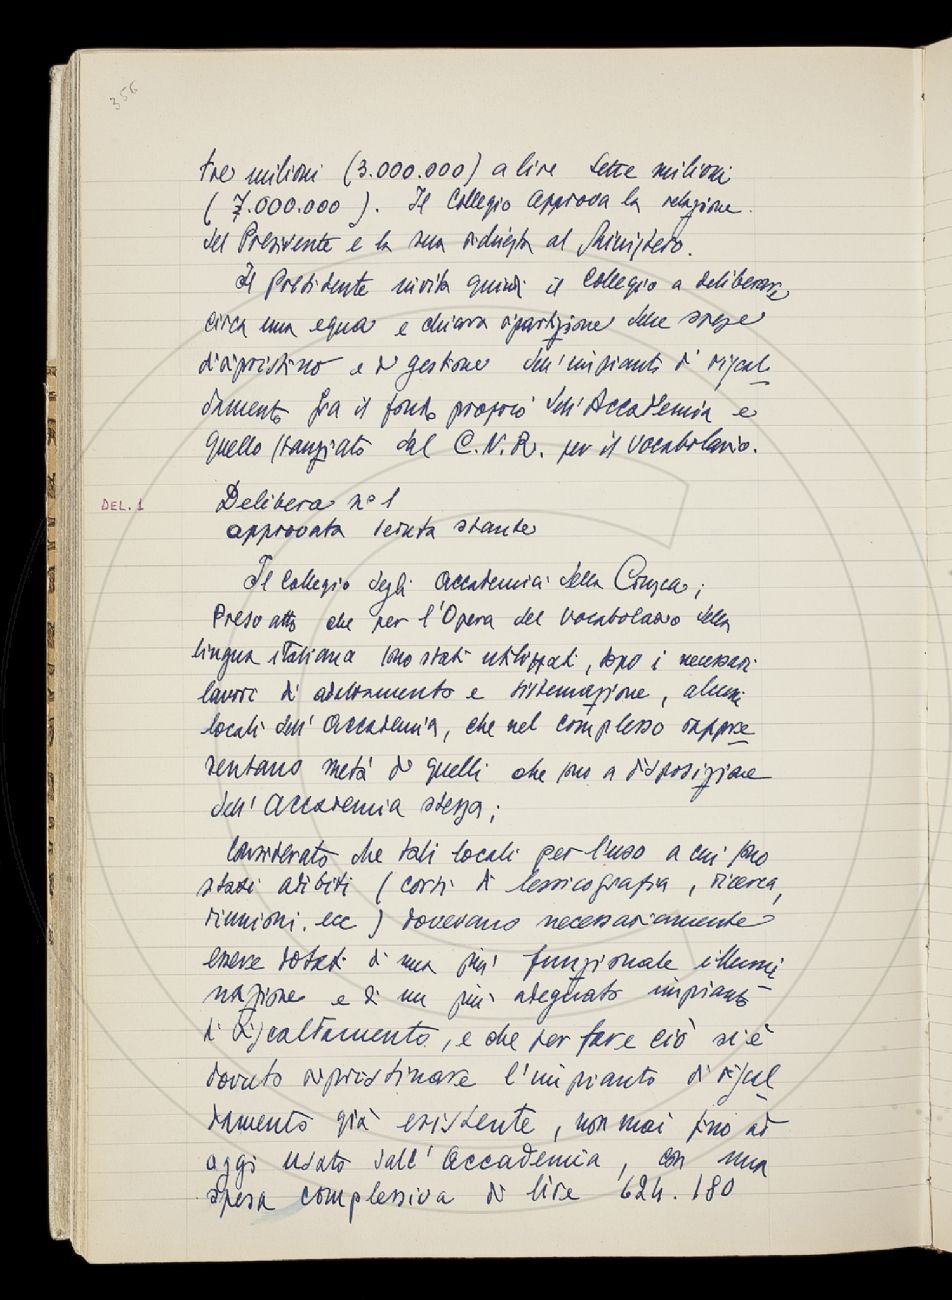 356
tre milioni (3.000.000) a lire sette milioni
(7.000.000). Il Collegio approva la relazione
del Presidente e la sua richiesta al Ministero.
Il Presidente invita quindi il Collegio a deliberare
circa una equa e chiara ripartizione delle spese
di ripristino e di gestione dell'impianto di riscal
damento fra il fondo proprio dell'Accademia e
quello stanziato dal C.N.R. per il Vocabolario.
DEL. 1
Delibera n° 1
approvata seduta stante
Il Collegio degli Accademici della Crusca;
Preso atto che per l'Opera del Vocabolario della
lingua italiana sono stati utilizzati, dopo i necessari
lavori di adattamento e sistemazione, alcuni
locali dell'Accademia, che nel complesso rappre
sentano metà di quelli che sono a disposizione
dell'Accademia stessa;
Considerato che tali locali per l'uso a cui sono
stati adibiti (corsi di lessicografia, ricerca,
riunioni. ecc) dovevano necessariamente
essere dotati di una più funzionale illumi
nazione e di un più adeguato impianto
di riscaldamento, e che per fare ciò si è
dovuto ripristinare l'impianto di riscal
damento già esistente, non mai fino ad
oggi usato dall'Accademia, con una
spesa complessiva di lire 624.180